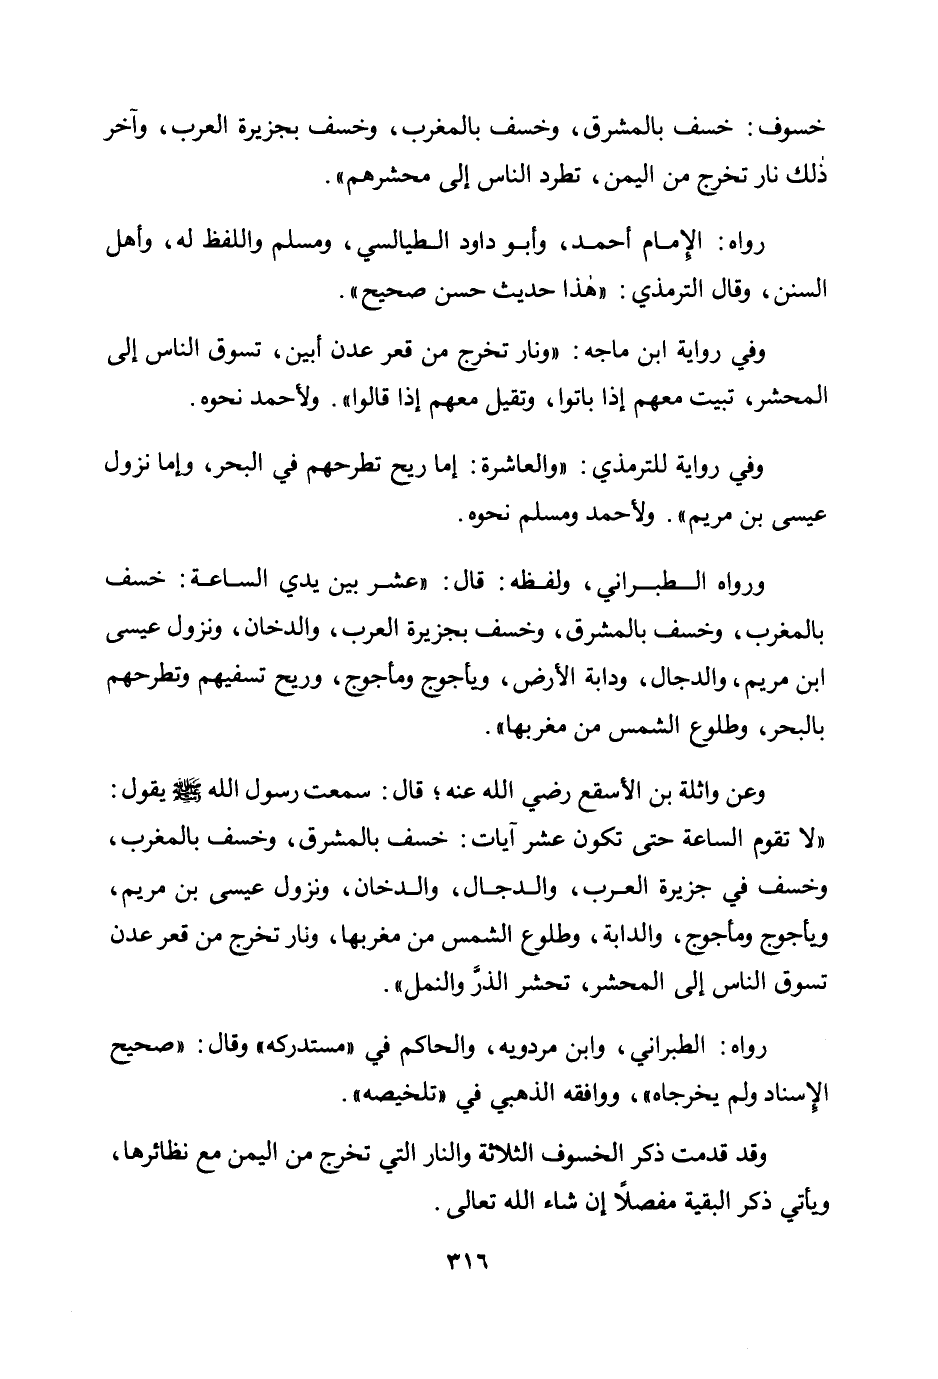 خسوف: خسف بالمشرق، وخسف بالمغرب، وخسف بجزيرة العرب، وآخر
ذٰلك نار تخرج من اليمن، تطرد الناس إلى محشرهم».
رواه: الإمام أحمد، وأبو داود الطيالسي، ومسلم واللفظ له، وأهل
السنن، وقال الترمذي: «هٰذا حديث حسن صحيح».
وفي رواية ابن ماجه: «ونار تخرج من قعر عدن أبين، تسوق الناس إلى
المحشر، تبيت معهم إذا باتوا، وتقيل معهم إذا قالوا». ولأحمد نحوه.
وفي رواية للترمذي: «والعاشرة: إما ريح تطرحهم في البحر، وإما نزول
عيسى بن مريم». ولأحمد ومسلم نحوه.
ورواه الطبراني، ولفظه: قال: «عشر بين يدي الساعة: خسف
بالمغرب، وخسف بالمشرق، وخسف بجزيرة العرب، والدخان، ونزول عيسى
ابن مريم، والدجال، ودابة الأرض، ويأجوج ومأجوج، وريح تسفيهم وتطرحهم
بالبحر، وطلوع الشمس من مغربها».
وعن واثلة بن الأسقع رضي الله عنه؛ قال: سمعت رسول الله ﷺ يقول:
«لا تقوم الساعة حتى تكون عشر آيات: خسف بالمشرق، وخسف بالمغرب،
وخسف في جزيرة العرب، والدجال، والدخان، ونزول عيسى بن مريم،
ويأجوج ومأجوج، والدابة، وطلوع الشمس من مغربها، ونار تخرج من قعر عدن
تسوق الناس إلى المحشر، تحشر الذرَّ والنمل».
رواه: الطبراني، وابن مردويه، والحاكم في «مستدركه» وقال: «صحيح
الإسناد ولم يخرجاه»، ووافقه الذهبي في «تلخيصه».
وقد قدمت ذكر الخسوف الثلاثة والنار التي تخرج من اليمن مع نظائرها،
ويأتي ذكر البقية مفصلًا إن شاء الله تعالى.
٣١٦